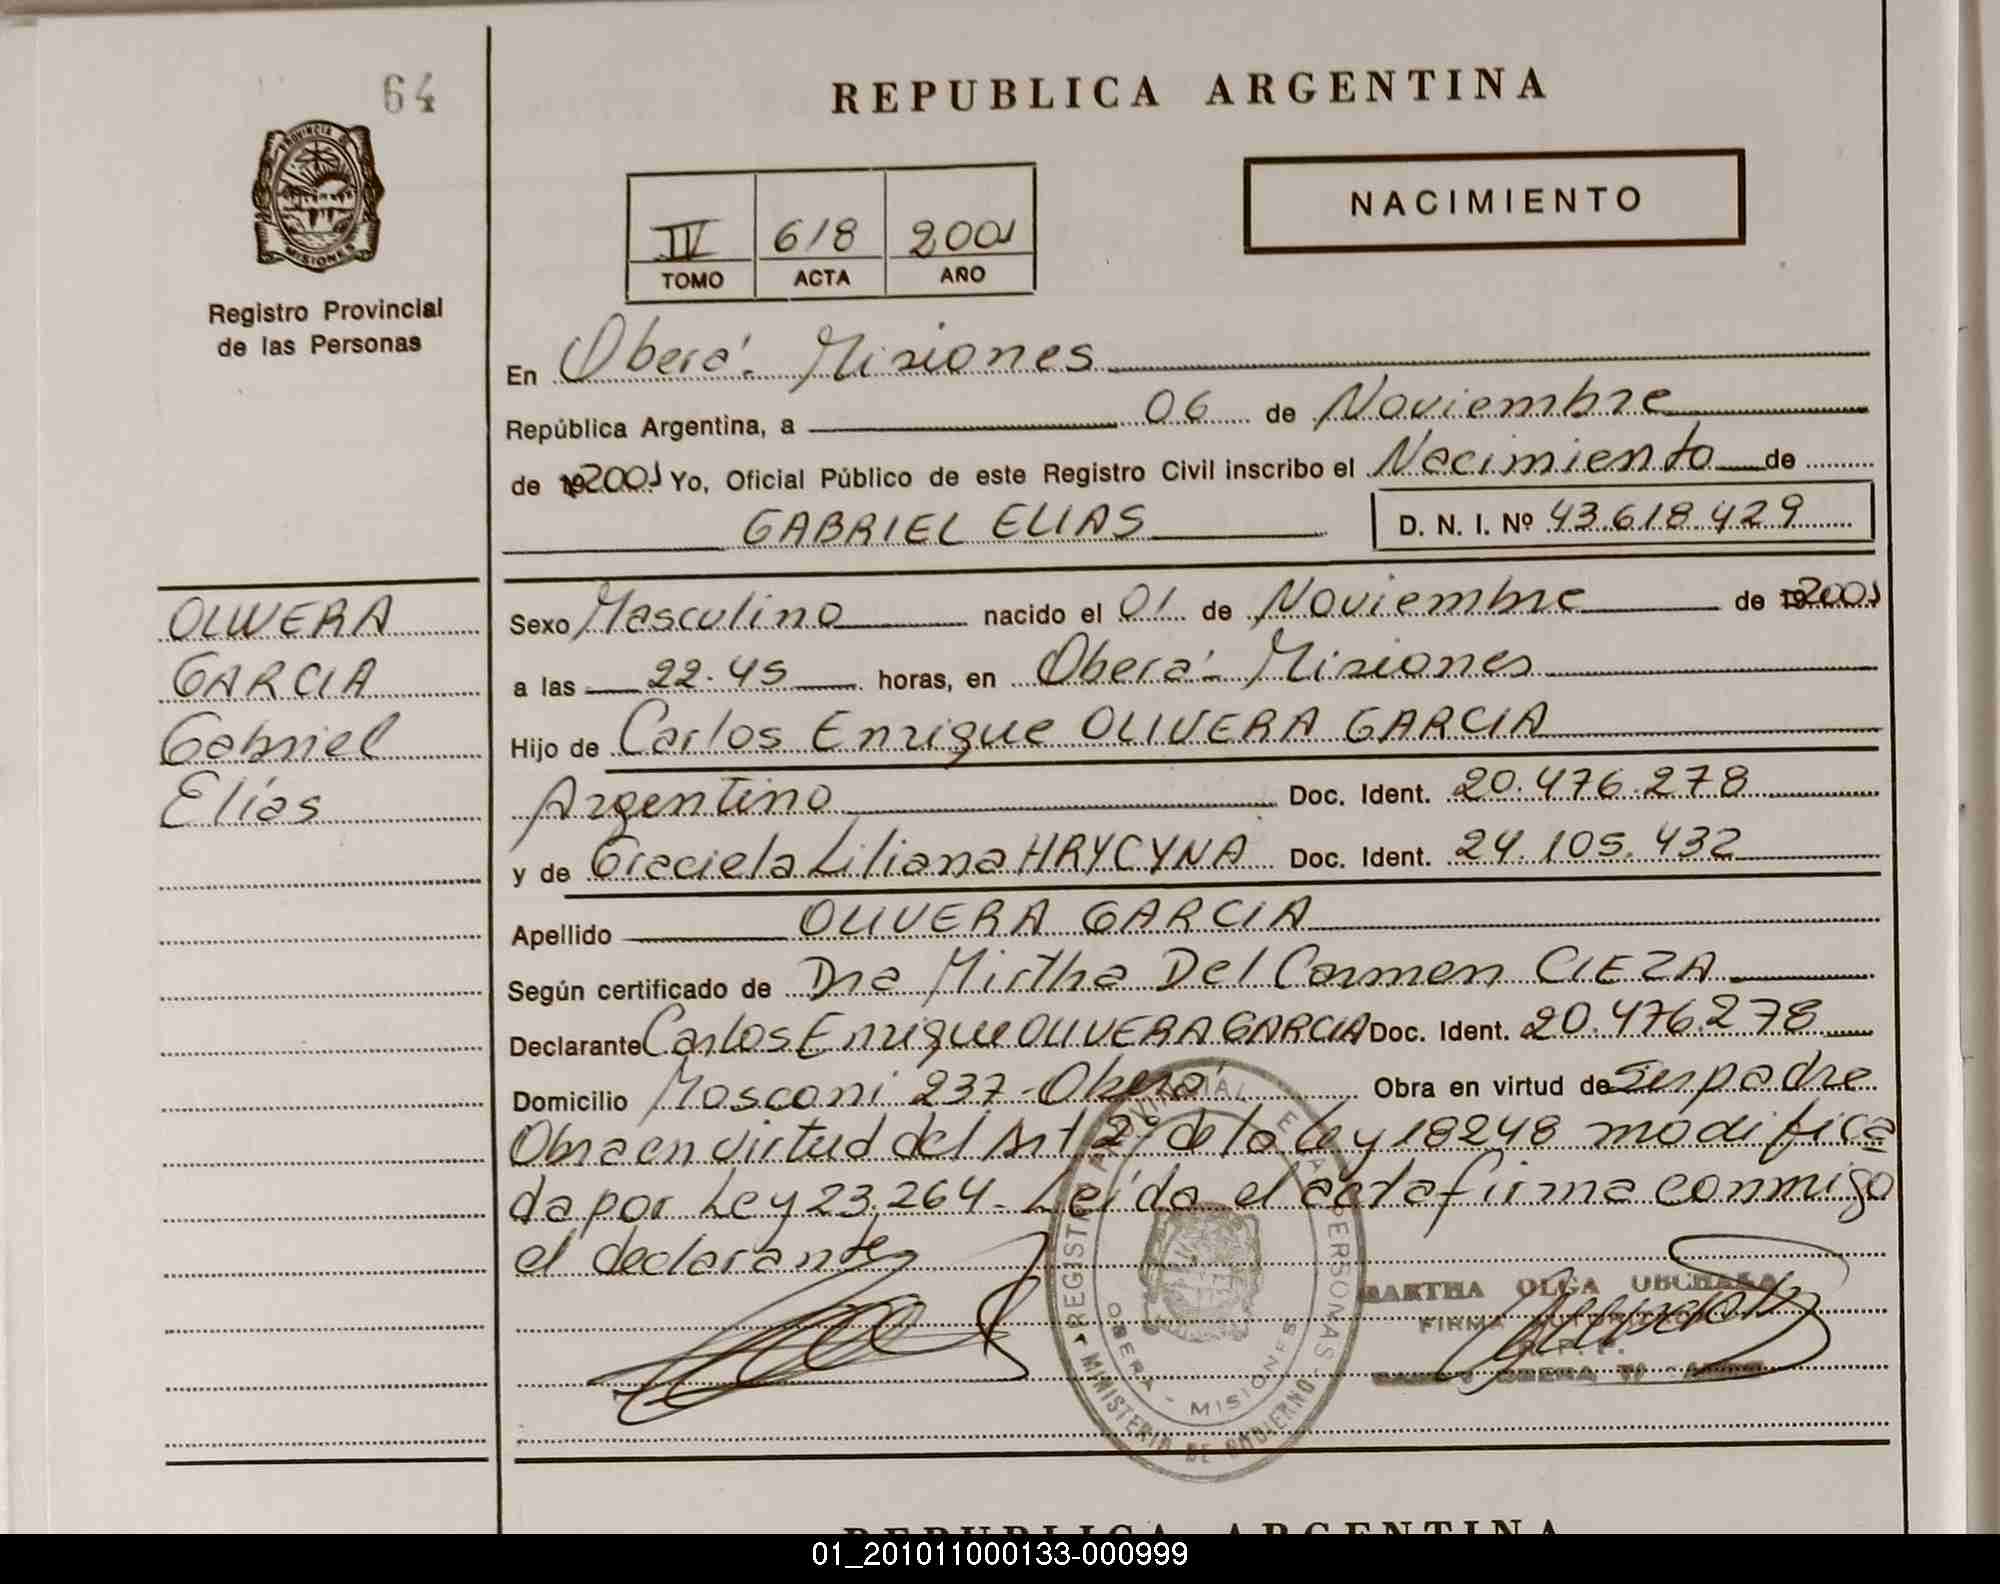 64
REPUBLICA ARGENTINA
PROVINCIA DE
MISIONES
Registro Provincial
de las Personas
IV 618 2001
TOMO ACTA AÑO
NACIMIENTO
En Oberá. Misiones
República Argentina, a 06 de Noviembre
de 192001 Yo, Oficial Público de este Registro Civil inscribo el Nacimiento de
GABRIEL ELIAS D. N. I. Nº 43.618.429
OLIVERA
GARCIA
Gabriel
Elías
Sexo Masculino nacido el 01 de Noviembre de 192001
a las 22.45 horas, en Oberá. Misiones
Hijo de Carlos Enrique OLIVERA GARCIA
Argentino Doc. Ident. 20.476.278
y de Graciela Liliana HRYCYNA Doc. Ident. 24.105.432
Apellido OLIVERA GARCIA
Según certificado de Dra Mirtha Del Carmen CIEZA
Declarante Carlos Enrique OLIVERA GARCIA Doc. Ident. 20.476.278
Domicilio Mosconi 237-Oberá Obra en virtud de Ser padre
Obra en virtud del Art 2º de la Ley 18248 modifica
da por Ley 23.264- Leída el acta firma conmigo
el declarante
REGISTRO PROVINCIAL DE LAS PERSONAS
OBERA - MISIONES
MINISTERIO DE GOBIERNO
MARTHA OLGA
FIRMA AUTORIZADA
R. P. P.
OBERA
REPUBLICA ARGENTINA
01_201011000133-000999